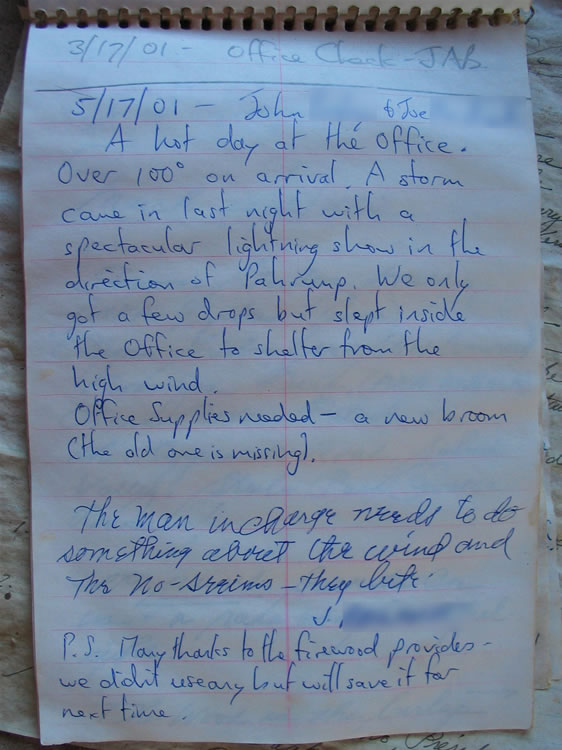 3/17/01 - Office Check - JAB
5/17/01 - John & Joe
A hot day at the office.
Over 100° on arrival. A storm
came in last night with a
spectacular lightning show in the
direction of Pahrump. We only
got a few drops but slept inside
the office to shelter from the
high wind.
Office Supplies needed - a new broom
(the old one is missing).
The man in charge needs to do
something about the wind and
the no-seeims - they bite.
J.
P.S. Many thanks to the firewood provider -
we didn't use any but will save it for
next time.